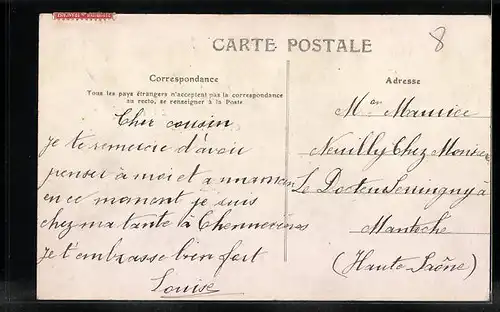 CARTE POSTALE
8
Correspondance
Tous les pays étrangers n'acceptent pas la correspondance
au recto, se renseigner à la Poste
Cher cousin
je te remercie d'avoir
penser à moi et a maman
en ce moment je suis
chez ma tante à
je t'embrasse bien fort
Louise
Adresse
Mr Maurice
Neuilly Chez Monsieur
Le Docteur à
Mantoche
(Haute Saône)